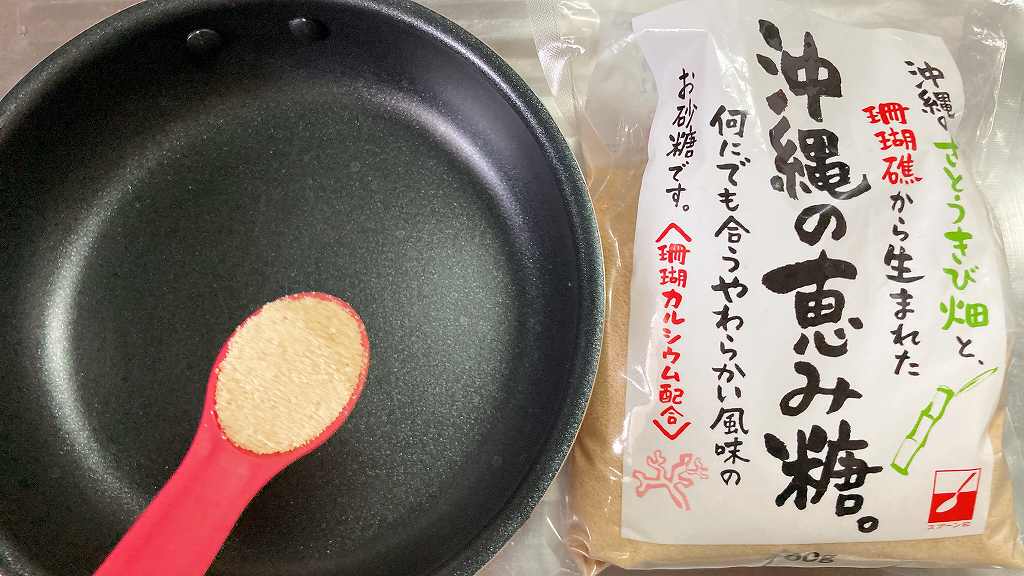 沖縄。さとうきび畑と、
珊瑚礁から生まれた
沖縄の恵み糖。
何にでも合うやわらかい風味の
お砂糖です。
〈珊瑚カルシウム配合〉
スプーン印